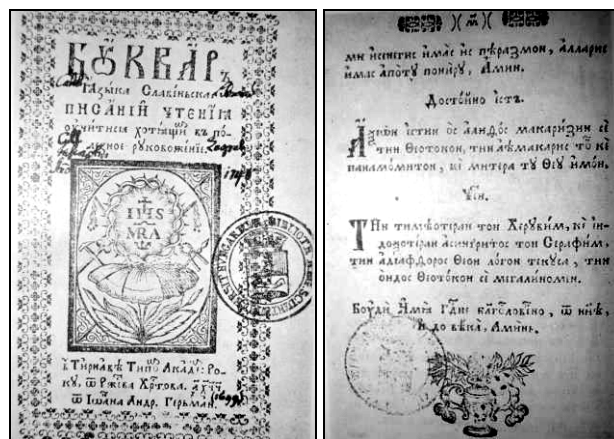 БꙊКВАРЪ
Ꙗзыка Славѣньска
ПИСАНІЙ ЧТЕНЇѦ
оучитисѧ хотѧщий въ по-
лезное руковоженїе
IHS
MRA
в Тирнавѣ Типѡ Акаді: Ро-
ку, ѿ Ржтва Хртова.
ѿ Іѡана Андр. Герьман.
ми исенегис имас ис пѣразмон, алларис
имас апоту пониру, Аминь.
Достойно істъ.
Аѯион істин ос алифос макаризин сѐ
тин Ѳеотокон, тин аѣмакарис тѡ кѐ
панамомитон, кѐ митера ту Ѳеу имон.
Тин тимїотеран тон Херувим, кѐ ин-
доѯотеран асингритос тон Серафим,
тин адїафѳорос Ѳеон логон текуса, тин
ондос Ѳеотокон сѐ мегалиномин.
Боуди Имѧ Гдне благословено, ѿ нинѣ,
и до вѣка, Аминь.